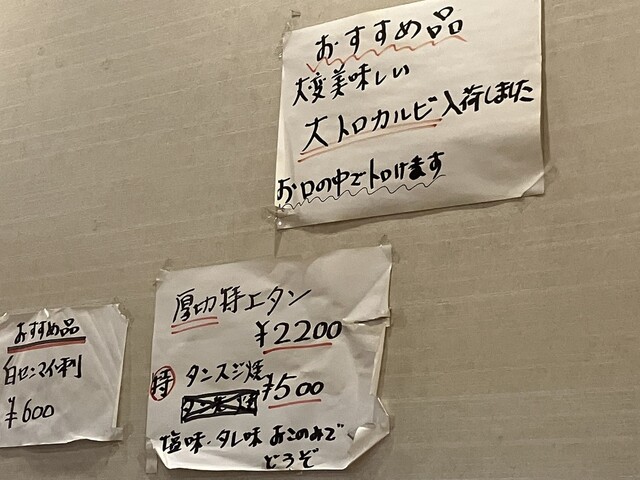 おすすめ品
大変美味しい
大トロカルビ入荷しました
お口の中でトロけます
厚切特上タン
¥2200
特 タンスジ焼 ¥500
塩味・タレ味 おこのみで
どうぞ
おすすめ品
白センマイ刺
¥600